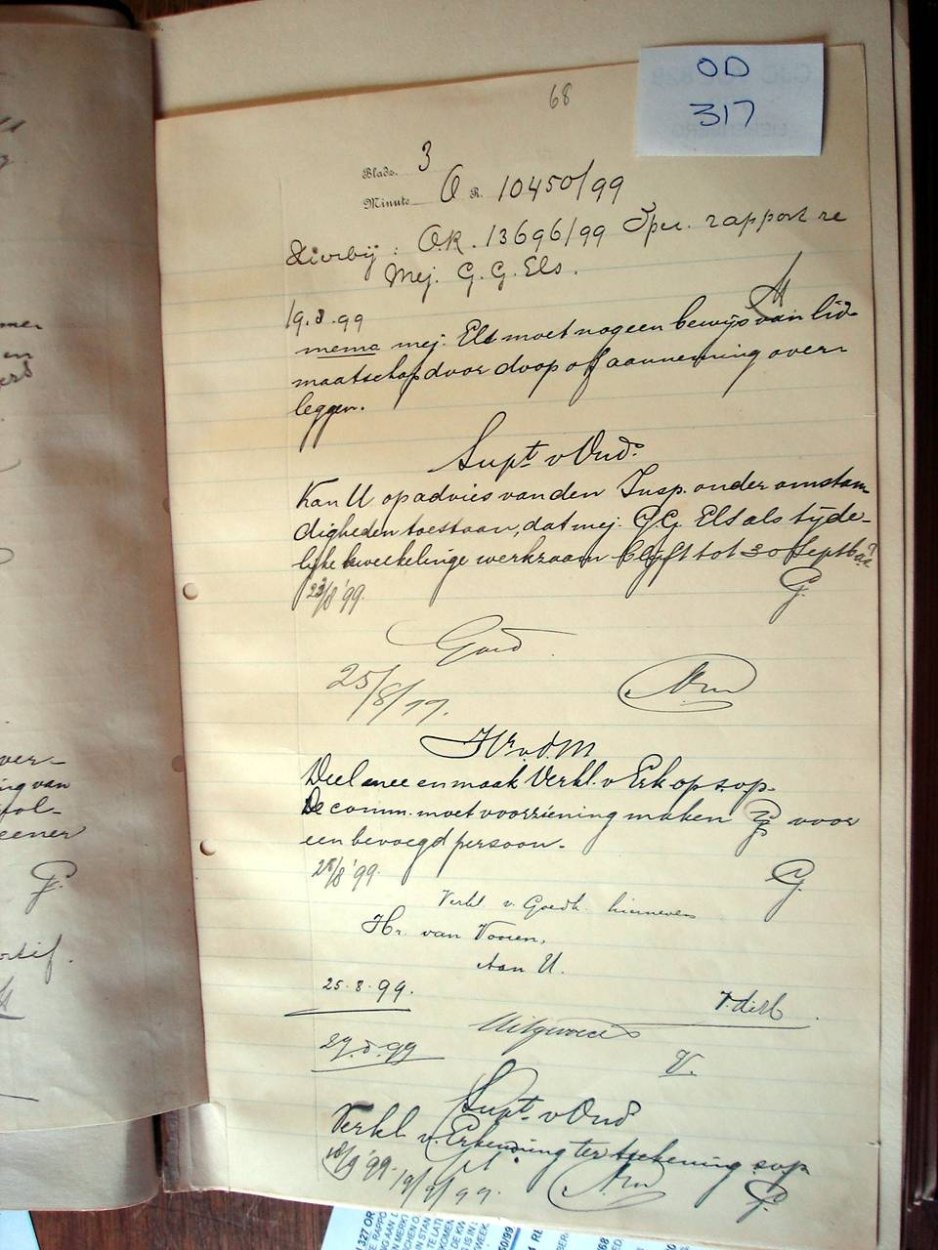 OD
317
68
Blads. 3
Minute O R. 10450/99
Hierbij: OR. 13696/99 Spec. rapport re
Mej. G. G. Els.
19.8.99
memo mej: Els moet nog een bewijs van lid-
maatschap door doop of aanneming over-
leggen.
Supt v Ond.
Kan U op advies van den Insp. onder omstan
digheden toestaan, dat mej. G.G. Els als tijde-
lijke kweekelinge werkzaam blijft tot 30 Septb a.s?
23/8 '99. G.
Goed.
25/8/99.
Hr. v. d. M
Deel mee en maak Verkl. v Erk op s.op.
De comm. moet voorziening maken voor
een bevoegd persoon.
28/8 '99. G.
Verkl v. Goedk. hiernevens
Hr. van
Aan U.
25.8.99.
29.8.99 V.
Supt v Ond
Verkl. v. Erkenning ter teekening svp
18/9 '99. G.
19/9/99.
mer
en
ver-
ing van
fol-
eener
G.